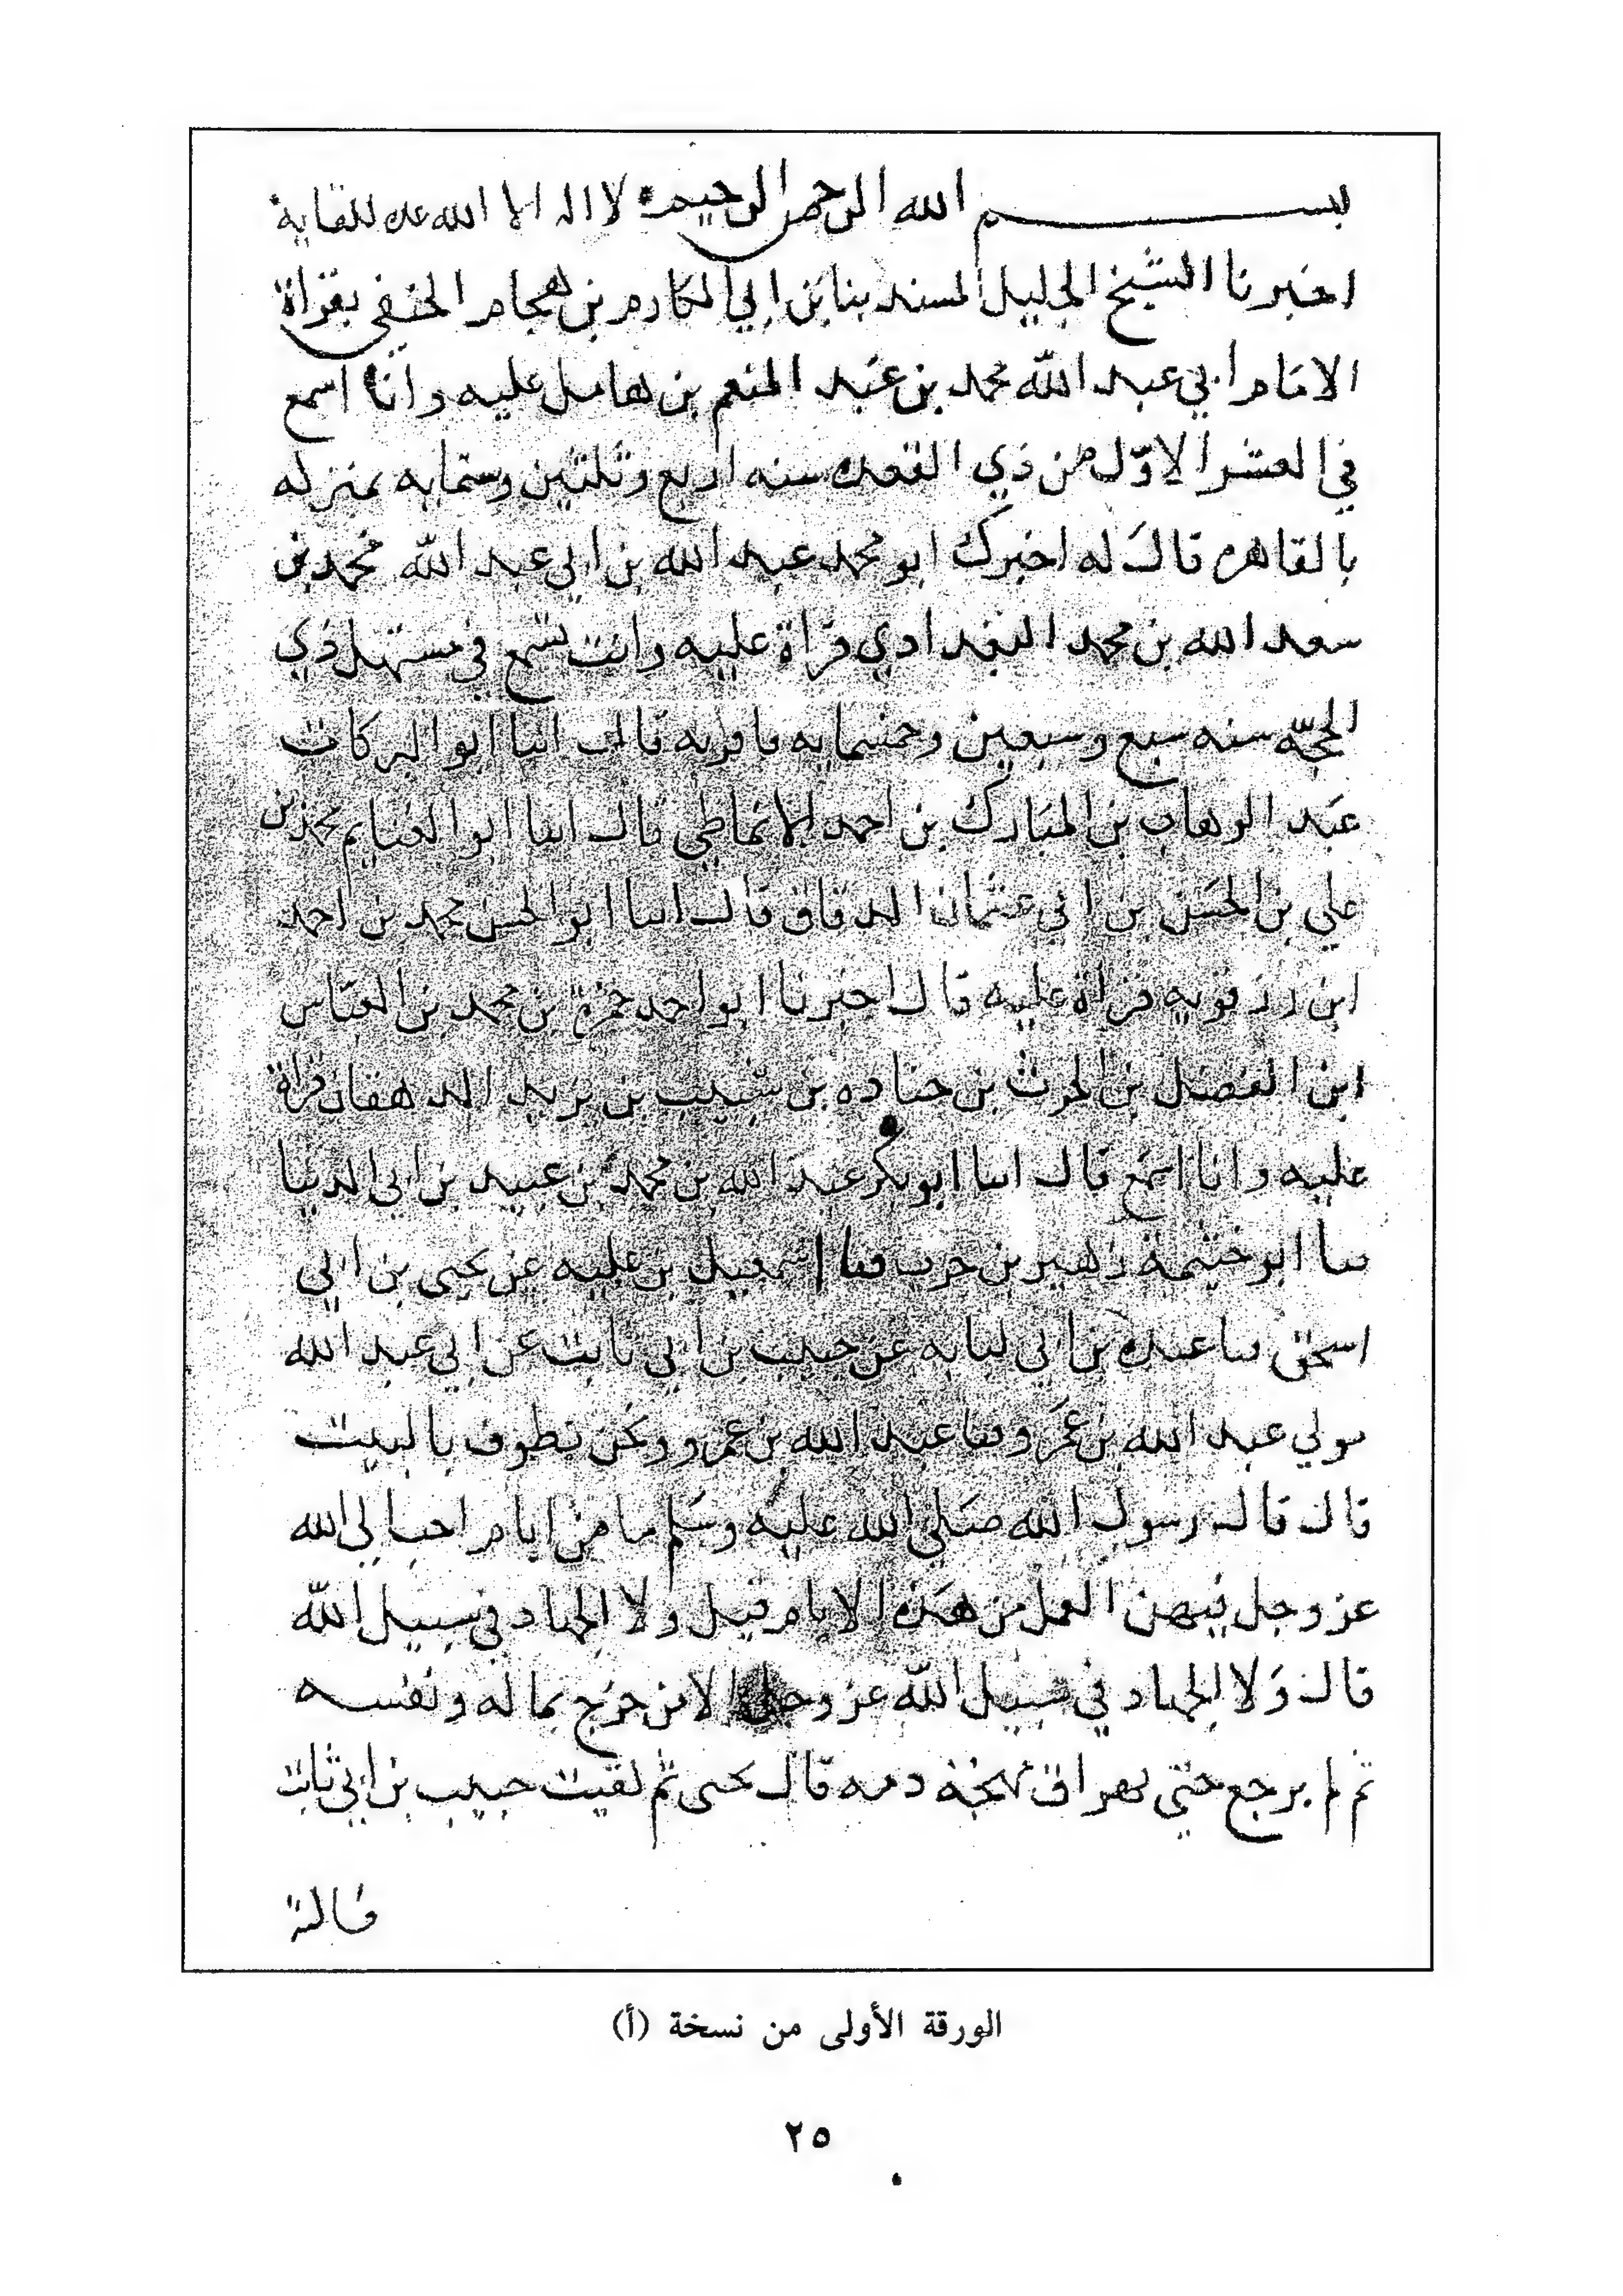 بسم الله الرحمن الرحيم لا اله الا الله عده للقايه
اخبرنا الشيخ الجليل المسند بنا بن ابي المكارم بن هجام الحنفي بقراة
الامام ابي عبد الله محمد بن عبد المنعم بن هامل عليه وانا اسمع
في العشر الاول من ذي القعده سنه اربع وثلثين وستمايه بمنزله
بالقاهره قال له اخبرك ابو محمد عبد الله بن ابي عبد الله محمد بن
سعد الله بن محمد البغدادي قراة عليه وانت تسمع في مستهل ذي
الحجه سنه سبع وسبعين وخمسمايه فاقربه قال انبا ابو البركات
عبد الوهاب بن المبارك بن احمد الانماطي قال انبا ابو الغنايم محمد بن
علي بن الحسن بن ابي عثمان الدقاق قال انبا ابو الحسن محمد بن احمد
ابن رزقويه قراة عليه قال اخبرنا ابو احمد حمزه بن محمد بن العباس
ابن الفضل بن الحرث بن جناده بن شبيب بن يزيد الدهقان قراة
عليه وانا اسمع قال انبا ابو بكر عبد الله بن محمد بن عبيد بن ابي الدنيا
ثنا ابو خيثمة زهير بن حرب ثنا اسمعيل بن عليه عن يحيى بن ابي
اسحق ثنا عبده بن ابي لبابه عن حبيب بن ابي ثابت عن ابي عبد الله
مولي عبد الله بن عمرو ثنا عبد الله بن عمرو ونحن نطوف بالبيت
قال قال رسول الله صلى الله عليه وسلم ما من ايام احب الى الله
عز وجل فيهن العمل من هذه الايام قيل ولا الجهاد في سبيل الله
قال ولا الجهاد في سبيل الله عز وجل الا من خرج بماله ونفسه
ثم لم يرجع حتى تهراق مهجة دمه قال يحيى ثم لقيت حبيب بن ابي ثابت
فسالته
الورقة الأولى من نسخة (أ)
٢٥